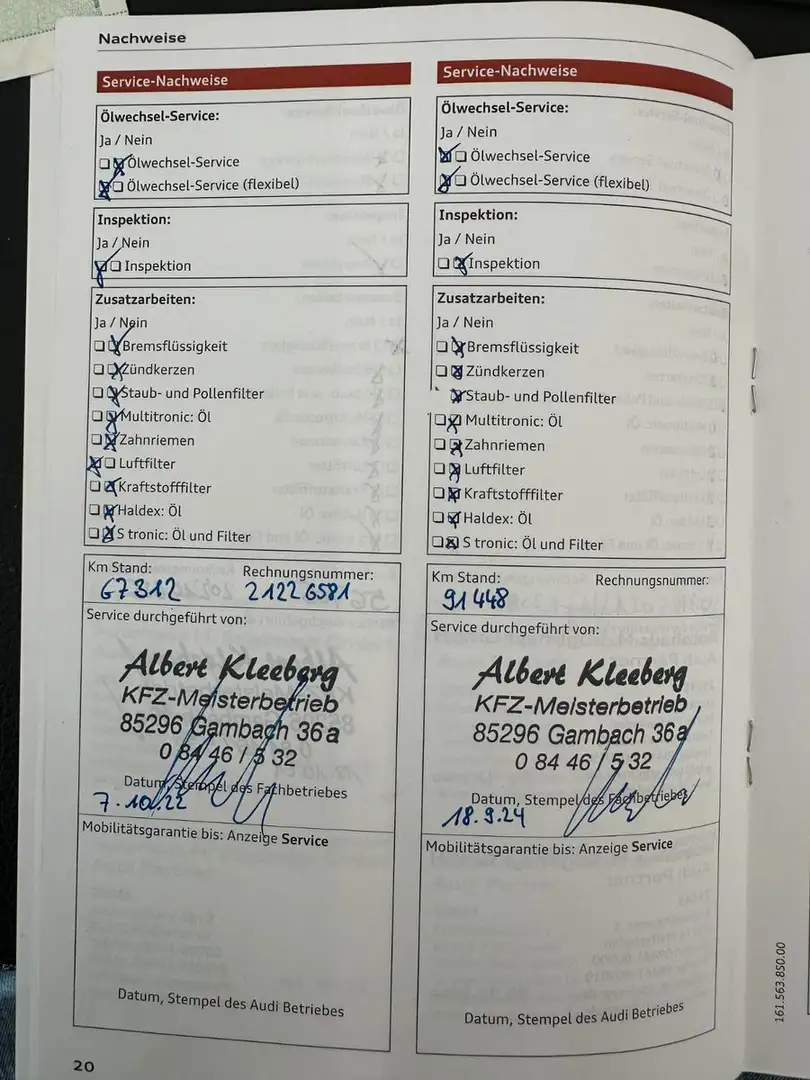 Nachweise
Service-Nachweise
Ölwechsel-Service:
Ja / Nein
Ölwechsel-Service
Ölwechsel-Service (flexibel)
Inspektion:
Ja / Nein
Inspektion
Zusatzarbeiten:
Ja / Nein
Bremsflüssigkeit
Zündkerzen
Staub- und Pollenfilter
Multitronic: Öl
Zahnriemen
Luftfilter
Kraftstofffilter
Haldex: Öl
S tronic: Öl und Filter
Km Stand: Rechnungsnummer:
67312 21226581
Service durchgeführt von:
Albert Kleeberg
KFZ-Meisterbetrieb
85296 Gambach 36a
0 84 46 / 5 32
Datum, Stempel des Fachbetriebes
7.10.22
Mobilitätsgarantie bis: Anzeige Service
Datum, Stempel des Audi Betriebes
20
Service-Nachweise
Ölwechsel-Service:
Ja / Nein
Ölwechsel-Service
Ölwechsel-Service (flexibel)
Inspektion:
Ja / Nein
Inspektion
Zusatzarbeiten:
Ja / Nein
Bremsflüssigkeit
Zündkerzen
Staub- und Pollenfilter
Multitronic: Öl
Zahnriemen
Luftfilter
Kraftstofffilter
Haldex: Öl
S tronic: Öl und Filter
Km Stand: Rechnungsnummer:
91448
Service durchgeführt von:
Albert Kleeberg
KFZ-Meisterbetrieb
85296 Gambach 36a
0 84 46 / 5 32
Datum, Stempel des Fachbetriebes
18.9.24
Mobilitätsgarantie bis: Anzeige Service
Datum, Stempel des Audi Betriebes
161.563.850.00